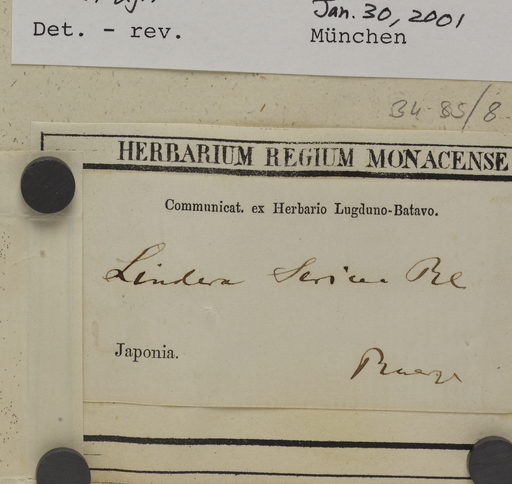 Jan. 30, 2001
Det. - rev.
München
34-85/8
HERBARIUM REGIUM MONACENSE
Communicat. ex Herbario Lugduno-Batavo.
Lindera sericea Bl
Japonia.